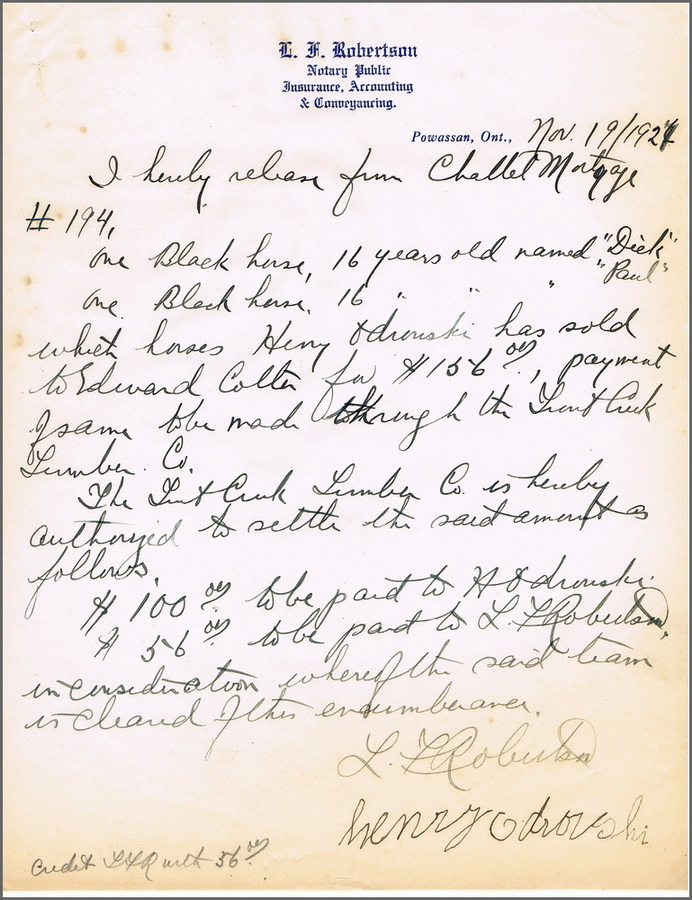 L. F. Robertson
Notary Public
Insurance, Accounting
& Conveyancing.
Powassan, Ont., Nov. 19/1927
I hereby release from Chattel Mortgage
# 194,
one Black horse, 16 years old named "Dick"
one Black horse, 16 " " " "Paul"
which horses Henry Odrowski has sold
to Edward Colter for $156.00, payment
of same to be made through the Trout Creek
Lumber Co.
The Trout Creek Lumber Co. is hereby
authorized to settle the said amount as
follows,
$ 100.00 to be paid to H Odrowski.
$ 56.00 to be paid to L F Robertson,
in consideration whereof the said team
is cleared of this encumberance.
L. F. Robertson
henry odrowski
Credit LFR with 56.00